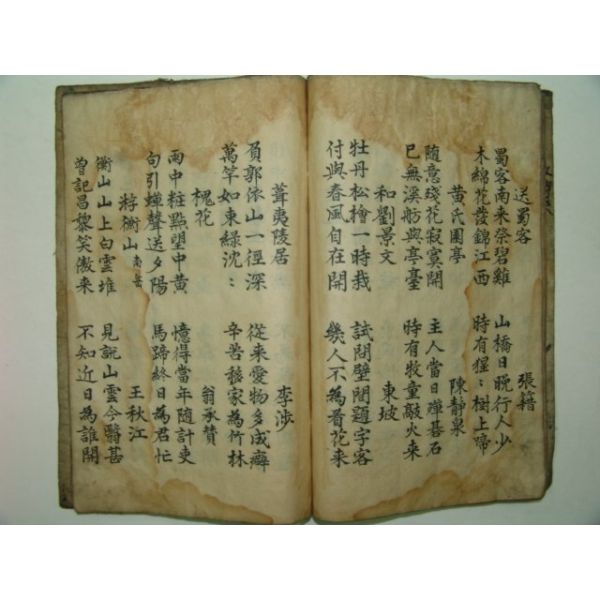 送蜀客 張籍
蜀客南来祭碧雞 山橋日晚行人少
木綿花發錦江西 時有猩〻樹上啼
黄氏園亭 陳静泉
随意残花寂寞開 主人當日鞾碁石
已無溪舫與亭臺 時有牧童敲火来
和劉景文 東坡
牡丹松檜一時栽 試問壁間題字客
付與春風自在開 幾人不為看花来
葺夷陵居 李渉
負郭依山一徑深 従来愛物多成癖
萬竿如束緑沈〻 辛苦移家為竹林
槐花 翁承賛
雨中粧點望中黄 憶得當年随計吏
句引蟬聲送夕陽 馬蹄終日為君忙
将衡山南岳 王秋江
衡山山上白雲堆 見説山雲今翳甚
曽記昌黎笑傲来 不知近日為誰開